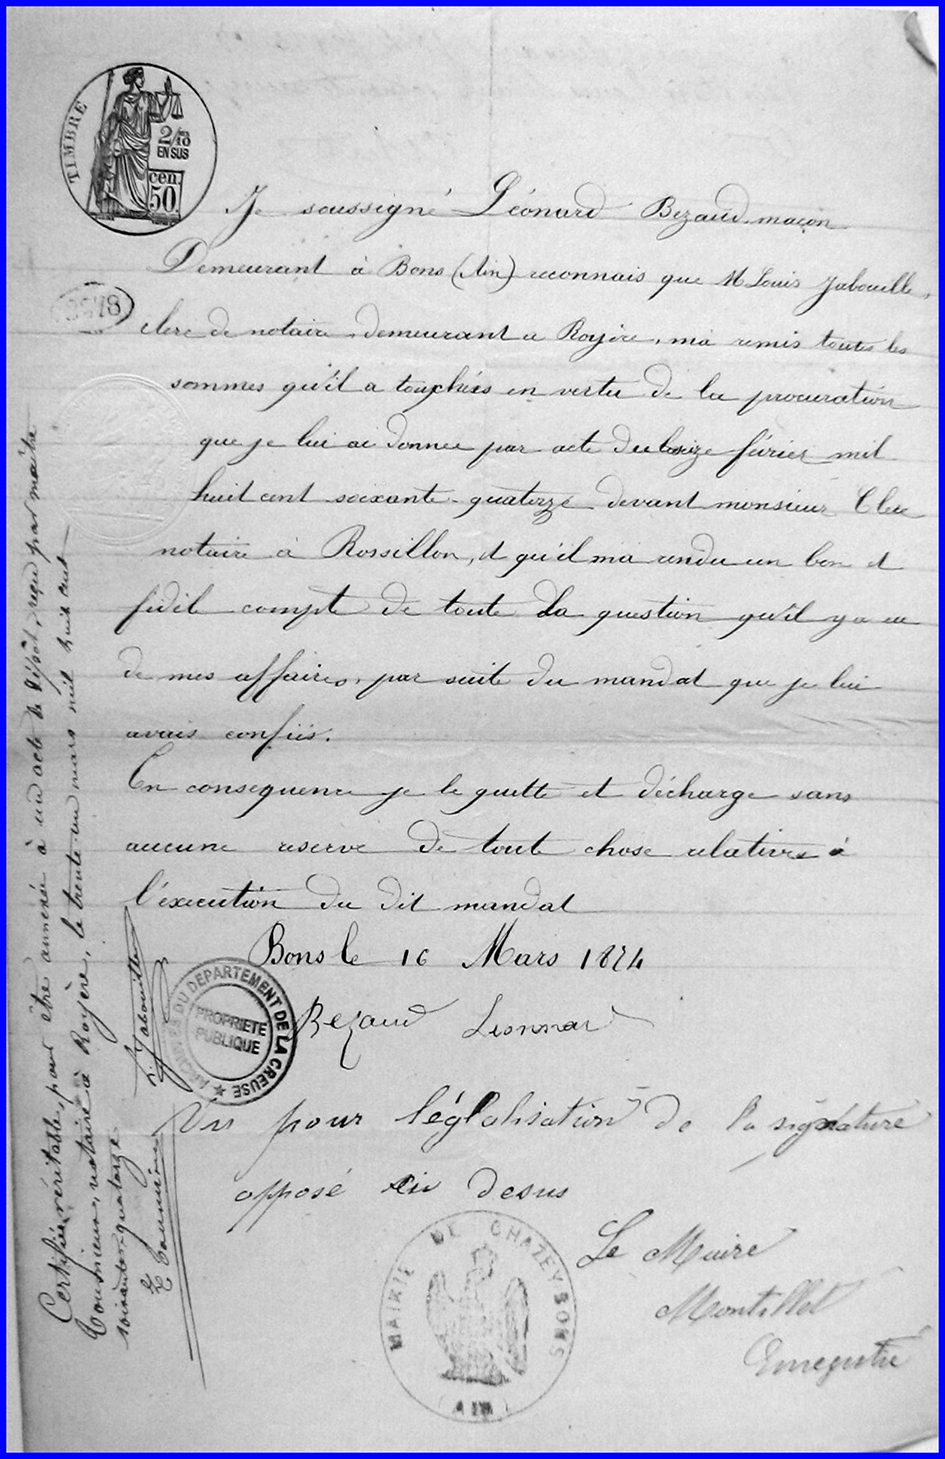 TIMBRE
2/10
EN SUS
cen.
50.
Je soussigné Léonard Bezaud maçon
Demeurant à Bons (Ain) reconnais que M Louis Jabouille,
clerc de notaire demeurant a Royère, ma remis toutes les
sommes qu'il a touchées en vertu de la procuration
que je lui ai donnee par acte du février mil
huit cent soixante-quatorze devant monsieur Clerc
notaire à Rossillon, et qu'il m'a rendu un bon et
fidèl compte de toute la question qu'il y a eu
de mes affaires, par suite du mandat que je lui
avais confiés.
En consequence je le quitte et décharge sans
aucune reserve de tout chose relatives à
l'éxecution du dit mandat
Bons le 16 Mars 1874
Bezaud Leonnard
ARCHIVES DU DEPARTEMENT DE LA CREUSE
PROPRIETE
PUBLIQUE
Vu pour léglalisation de la signature
opposé ci desus
Le Maire
Montillet
Enregistré
MAIRIE DE CHAZEY BONS
(AIN)
Certifié véritable, pour être annexé à un acte de dépôt, reçu par maître
Tournieux, notaire à Royère, le trente un mars mil huit cent
soixante quatorze
L. Jabouille